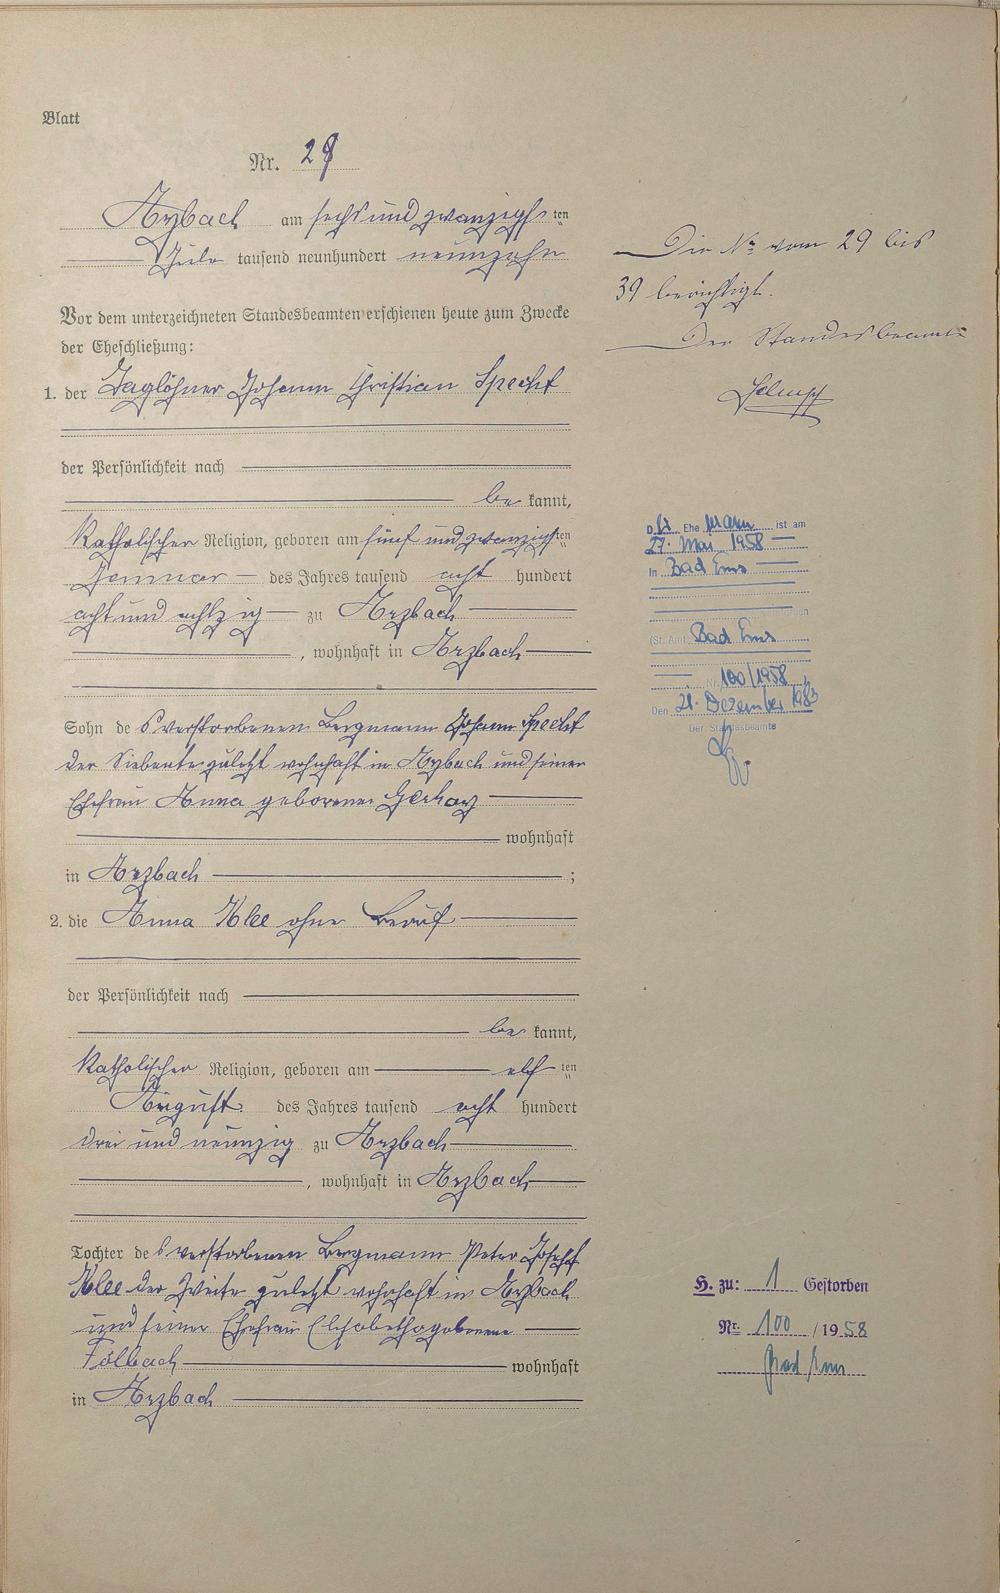 Blatt
Nr. 29
Arzbach am sechs und zwanzigsten
Julo tausend neunhundert neunzehn
Vor dem unterzeichneten Standesbeamten erschienen heute zum Zwecke
der Eheschließung:
1. der Taglöhner Johann Christian Specht
der Persönlichkeit nach
be kannt,
Katholischer Religion, geboren am fünf und zwanzigsten
Jannuar des Jahres tausend acht hundert
acht und achtzig zu Arzbach
, wohnhaft in Arzbach
Sohn des verstorbenen Bergmann Johann Specht
der Siebente zuletzt wohnhaft in Arzbach und seiner
Ehefrau Anna geborene
wohnhaft
in Arzbach ;
2. die Anna Klee ohne Beruf
der Persönlichkeit nach
be kannt,
Katholischer Religion, geboren am elf ten
August des Jahres tausend acht hundert
drei und neunzig zu Arzbach
, wohnhaft in Arzbach
Tochter des verstorbenen Bergmann Peter Joseph
Klee der Zweite zuletzt wohnhaft in Arzbach
und seiner Ehefrau Elisabetha geborene
wohnhaft
in Arzbach
Die No vom 29 bis
39 berichtigt.
Der Standesbeamte
Der Ehemann ist am
27. Mai 1958
in Bad Ems
(St. Amt Bad Ems
Nr. 100/1958
Den 21. Dezember 1983
Der Standesbeamte
H. zu: 1 Gestorben
Nr. 100 / 1958
Bad Ems